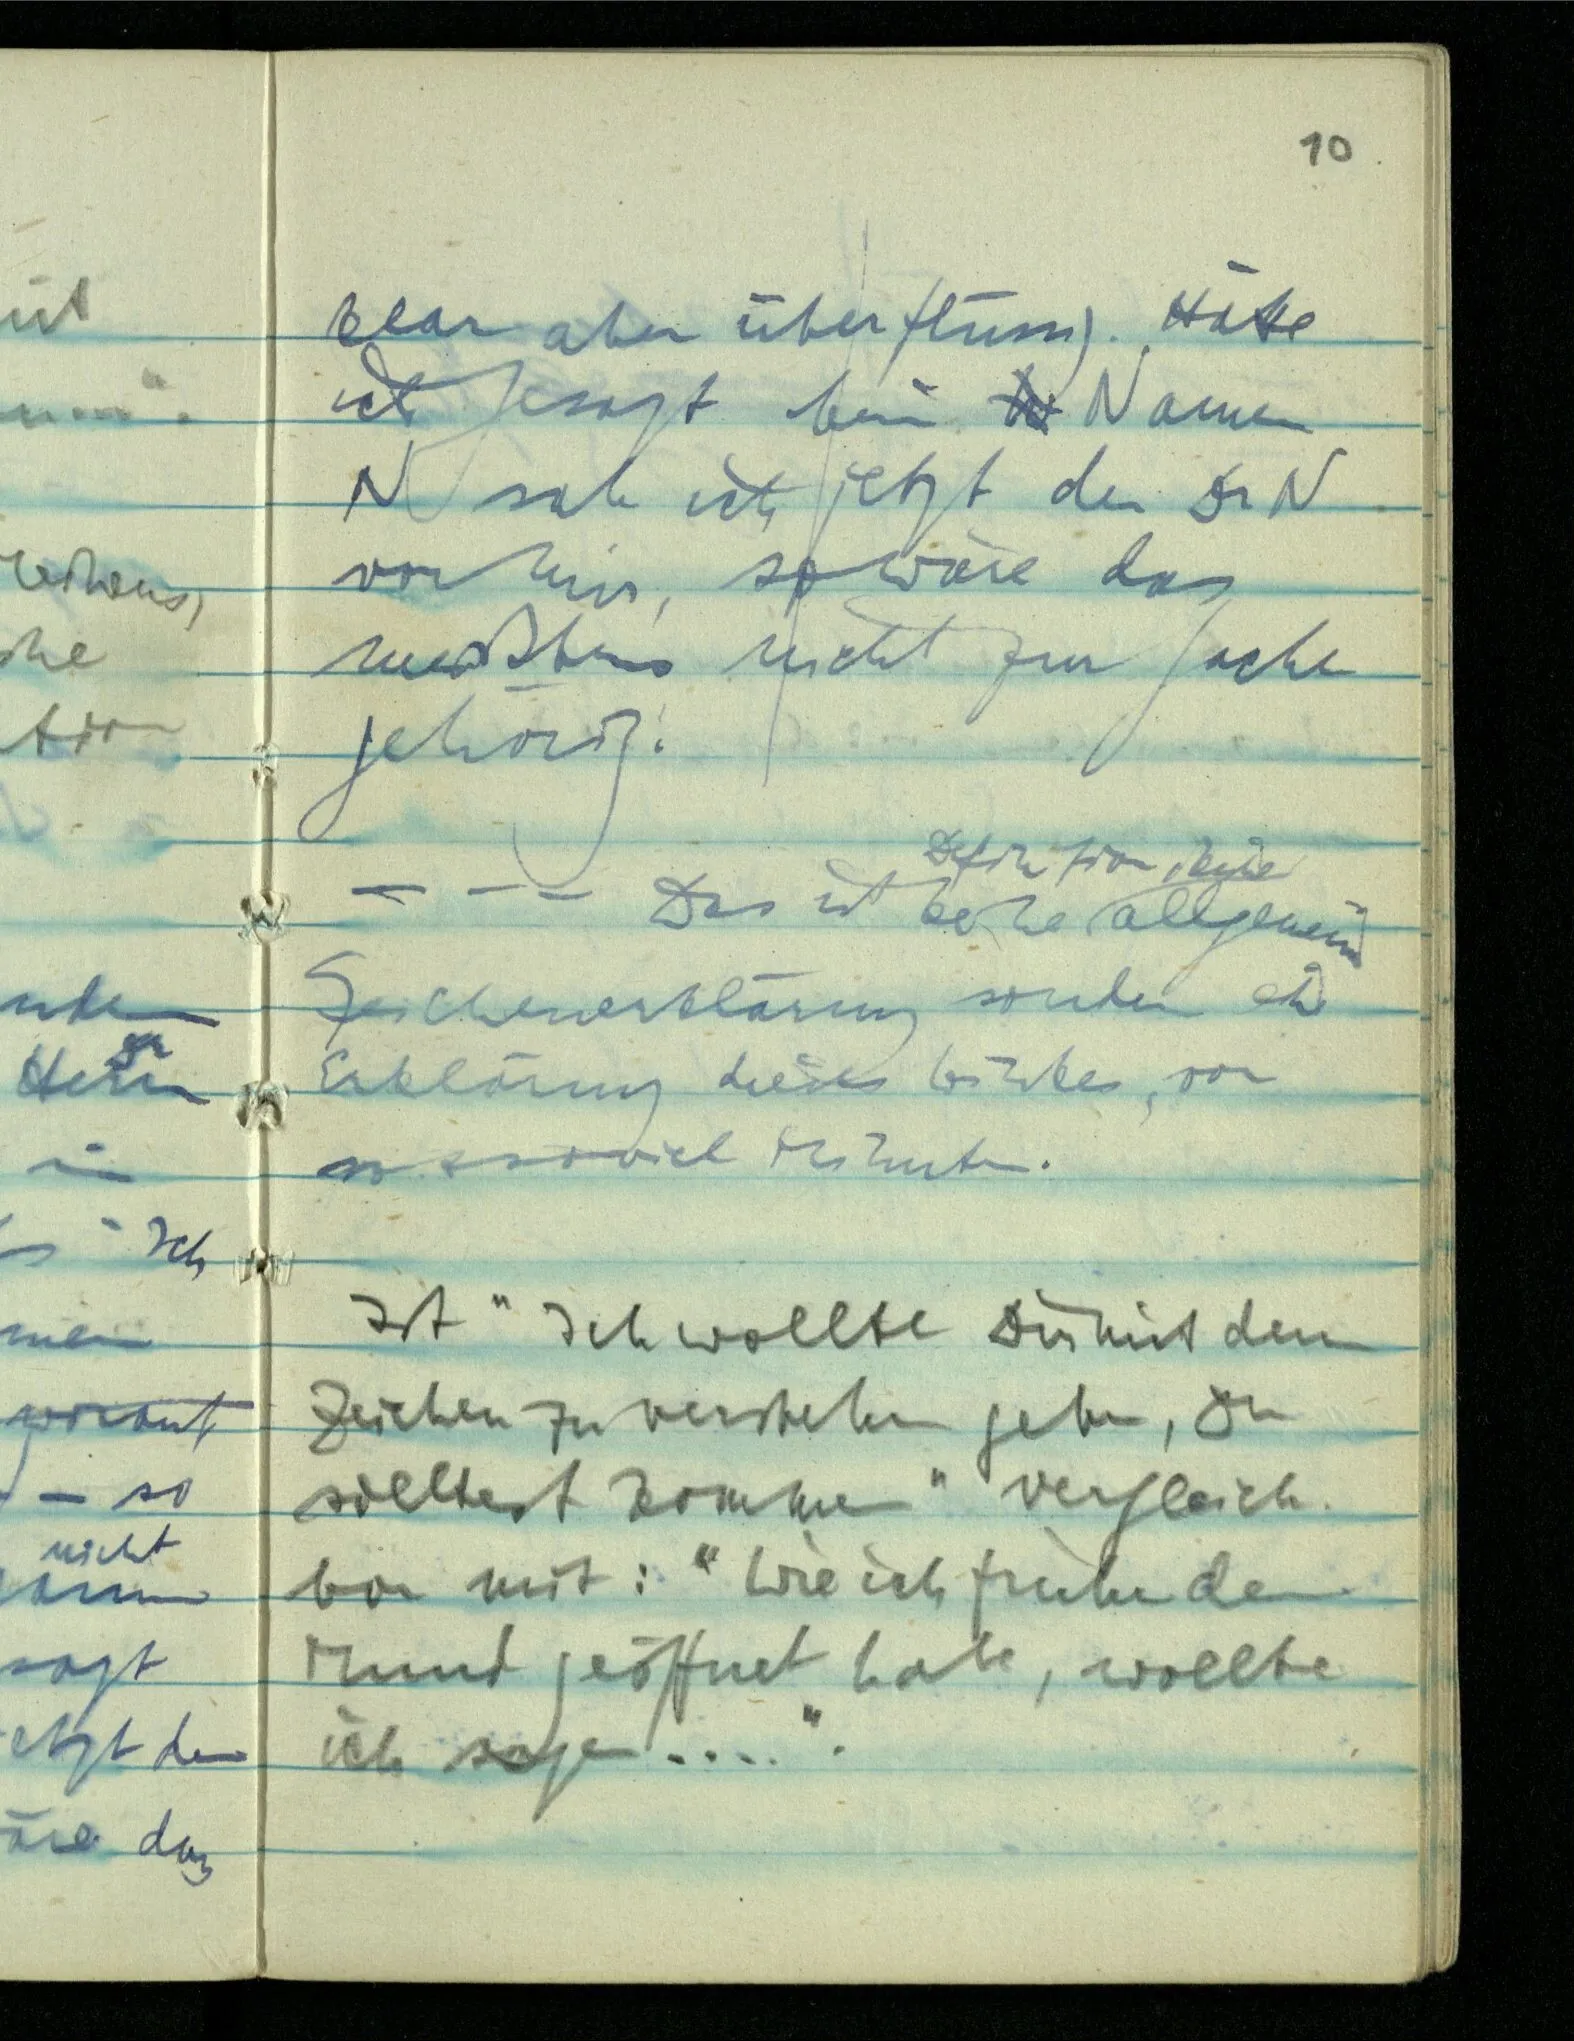 10
klar aber überflüssig. Hätte
ich gesagt beim Namen
N sah ich jetzt den Dr N
vor mir, so wäre das
meistens nicht zur Sache
gehörig.
— — — Das ist keine Definition, keine allgemeine
Zeichenerklärung sondern eine
Erklärung dieses Winkes, vor
so & soviel Minuten.
Ist " Ich wollte Dir mit dem
Zeichen zu verstehen geben, Du
solltest kommen" vergleich-
bar mit: "Wie ich früher den
Mund geöffnet habe, wollte
ich sagen....".
mit
che
ation
in
Ich
worauf
– so
nicht
warum
sagt
jetzt den
wäre das